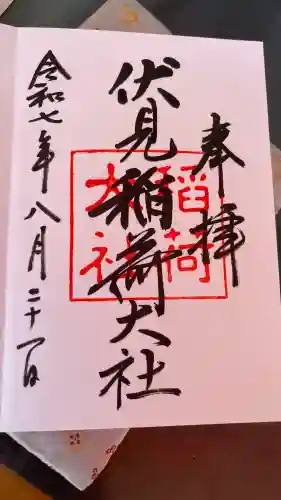 奉拝
伏見稲荷大社
稲荷
大社
令和七年八月二十一日